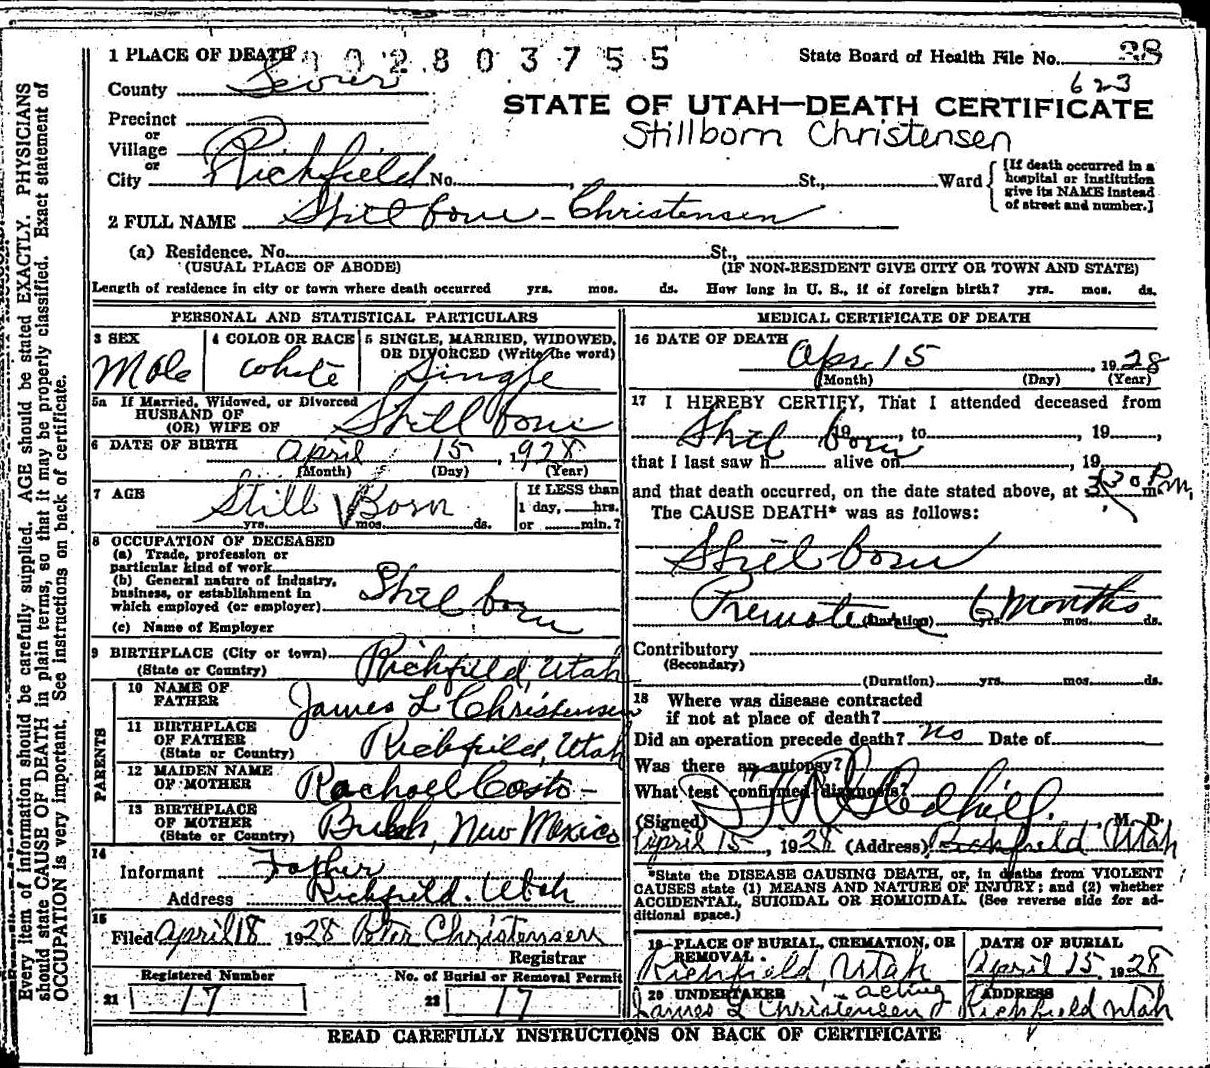 1 PLACE OF DEATH 002803755 State Board of Health File No. 38
County Sevier 623
STATE OF UTAH—DEATH CERTIFICATE
Precinct Stillborn Christensen
or
Village
or
City Richfield No. St., Ward
[If death occurred in a
hospital or institution
give its NAME instead
of street and number.]
2 FULL NAME Still born - Christensen
(a) Residence. No. St.,
(USUAL PLACE OF ABODE) (IF NON-RESIDENT GIVE CITY OR TOWN AND STATE)
Length of residence in city or town where death occurred yrs. mos. ds. How long in U. S., if of foreign birth? yrs. mos. ds.
PERSONAL AND STATISTICAL PARTICULARS
3 SEX
Male
4 COLOR OR RACE
White
5 SINGLE, MARRIED, WIDOWED,
OR DIVORCED (Write the word)
Single
5a If Married, Widowed, or Divorced
HUSBAND OF
(OR) WIFE OF Still born
6 DATE OF BIRTH April 15, 1928
(Month) (Day) (Year)
7 AGE Still Born
yrs. mos. ds.
If LESS than
1 day, hrs.
or min.?
8 OCCUPATION OF DECEASED
(a) Trade, profession or
particular kind of work
(b) General nature of industry,
business, or establishment in
which employed (or employer) Still born
(c) Name of Employer
9 BIRTHPLACE (City or town)
(State or Country) Richfield, Utah
PARENTS
10 NAME OF
FATHER James L Christensen
11 BIRTHPLACE
OF FATHER
(State or Country) Richfield, Utah
12 MAIDEN NAME
OF MOTHER Rachael Costo -
13 BIRTHPLACE
OF MOTHER
(State or Country) New Mexico
14
Informant Father
Address Richfield. Utah
15
Filed April 18 1928 Peter Christensen
Registrar
Registered Number No. of Burial or Removal Permit
21 17 22 17
MEDICAL CERTIFICATE OF DEATH
16 DATE OF DEATH Apr. 15, 1928
(Month) (Day) (Year)
17 I HEREBY CERTIFY, That I attended deceased from
Still born, 19, to, 19,
that I last saw h alive on, 19
and that death occurred, on the date stated above, at 3:30 P.m. m.
The CAUSE DEATH* was as follows:
Still born
Premature 6 Months
(Duration) yrs. mos. ds.
Contributory
(Secondary)
(Duration) yrs. mos. ds.
18 Where was disease contracted
if not at place of death?
Did an operation precede death? no Date of
Was there an autopsy?
What test confirmed diagnosis?
(Signed) M. D.
April 15, 1928 (Address) Richfield Utah
*State the DISEASE CAUSING DEATH, or, in deaths from VIOLENT
CAUSES state (1) MEANS AND NATURE OF INJURY; and (2) whether
ACCIDENTAL, SUICIDAL OR HOMICIDAL. (See reverse side for ad-
ditional space.)
19 PLACE OF BURIAL, CREMATION, OR
REMOVAL.
Richfield, Utah
DATE OF BURIAL
April 15 1928
20 UNDERTAKER acting
James L Christensen
ADDRESS
Richfield Utah
READ CAREFULLY INSTRUCTIONS ON BACK OF CERTIFICATE
Every item of information should be carefully supplied. AGE should be stated EXACTLY. PHYSICIANS
should state CAUSE OF DEATH in plain terms, so that it may be properly classified. Exact statement of
OCCUPATION is very important. See instructions on back of certificate.